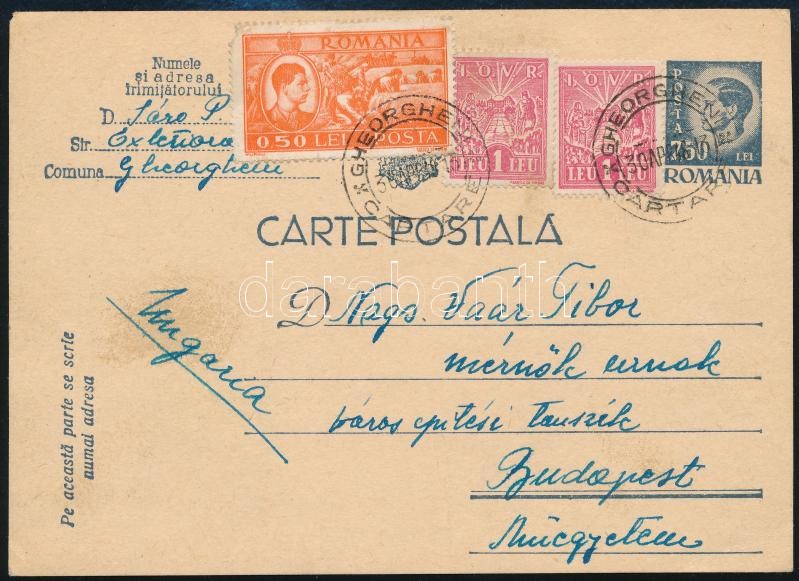 Numele
și adresa
trimițătorului
D.
Str.
Comuna Gheorgheni
ROMANIA
0 50 LEI POSTA
I.O.V.R.
LEU 1 LEU
I.O.V.R.
LEU 1 LEU
POSTA
LEI
ROMÂNIA
GHEORGHENI
CARTARE
GHEORGHENI
CARTARE
CARTE POSTALĂ
darabanth
Ungaria
D Nags. Vaár Tibor
mérnök urnak
város építési tanszék
Budapest
Műegyetem
Pe această parte se scrie
numai adresa